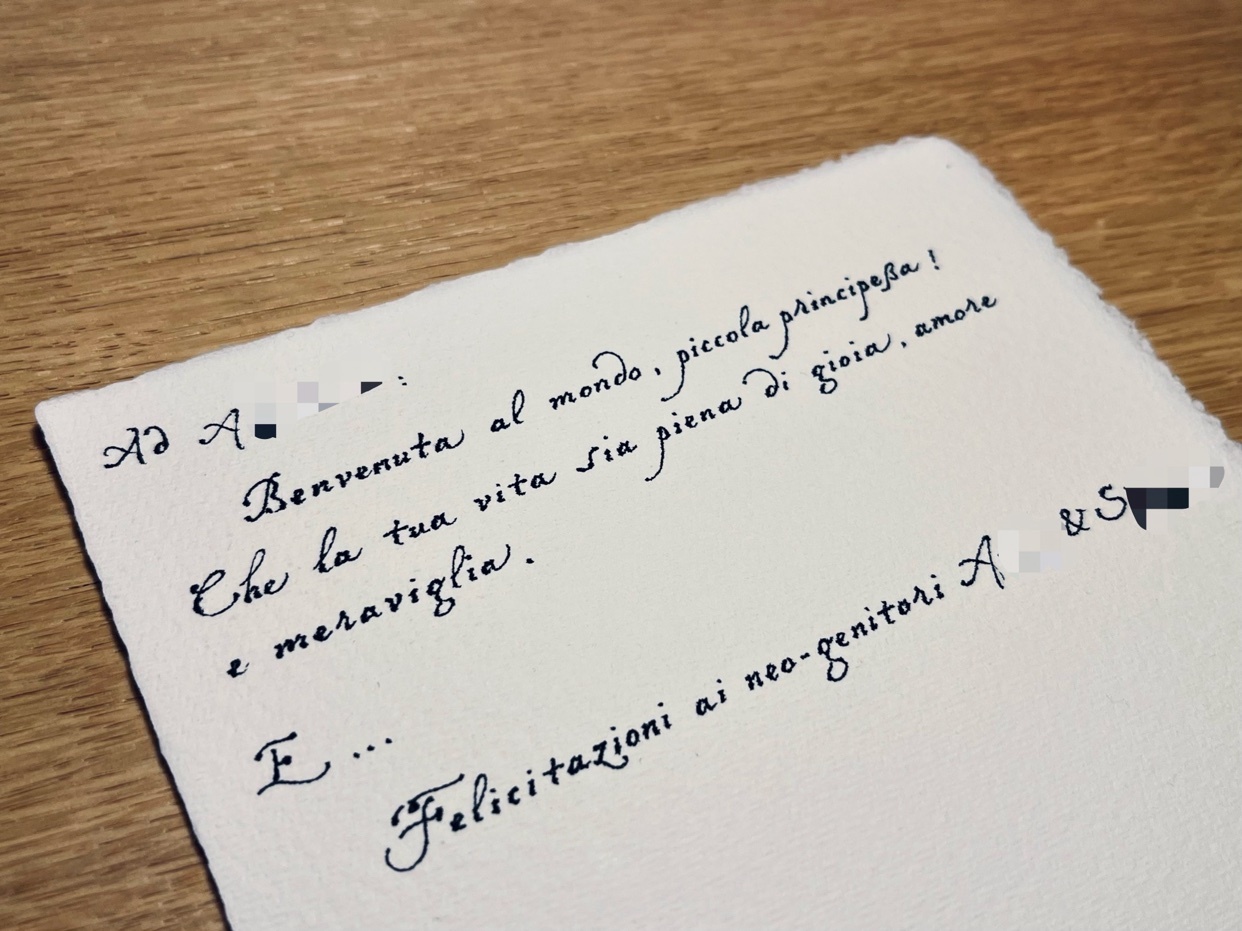 Ad A :
Benvenuta al mondo, piccola principeßa!
Che la tua vita sia piena di gioia, amore
e meraviglia.
E ...
Felicitazioni ai neo-genitori A & S